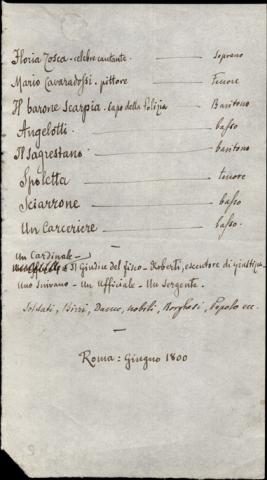 Floria Tosca - celebre cantante - Soprano
Mario Cavaradossi - pittore - Tenore
Il barone Scarpia - Capo della Polizia - Baritono
Angelotti - basso
Il Sagrestano - baritono
Spoletta - tenore
Sciarrone - basso
Un Carceriere - basso.
Un Cardinale -
Il Giudice del fisco - Roberti, esecutore di giustizia -
Uno Scrivano - Un Ufficiale - Un Sergente.
Soldati, Birri, Dame, nobili, Borghesi, Popolo ecc.
Roma: Giugno 1800